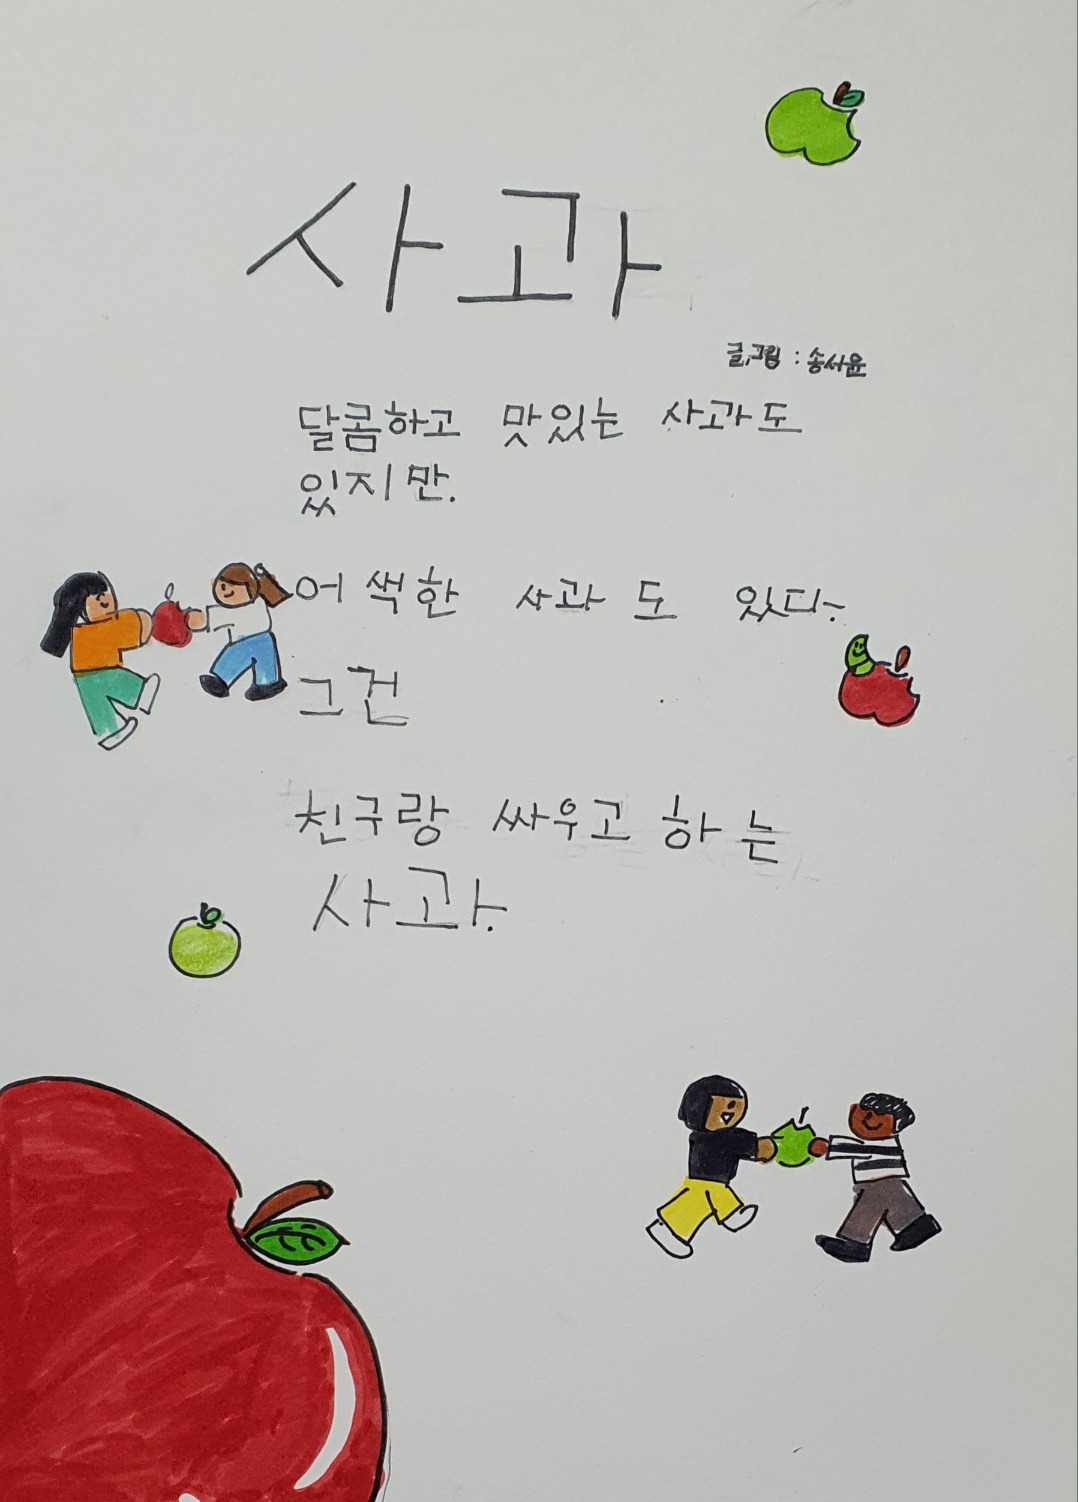 사과
글,그림 : 송서윤
달콤하고 맛있는 사과도
있지만.
어색한 사과도 있다~
그건
친구랑 싸우고 하는
사과.